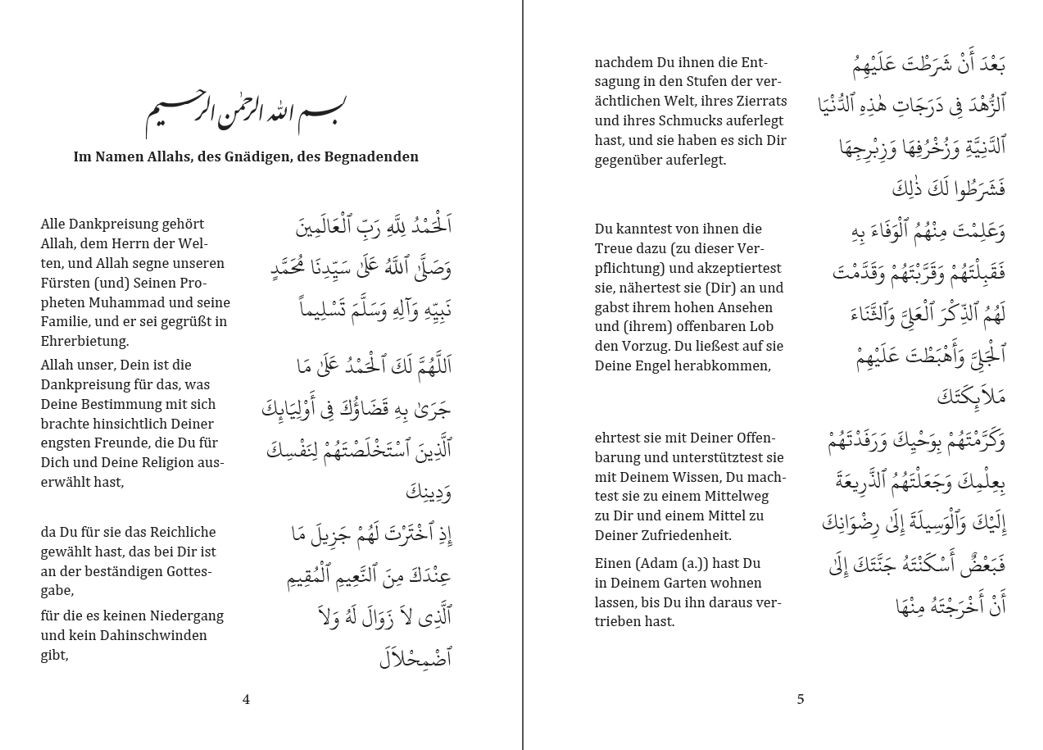 بسم الله الرحمٰن الرحيم
Im Namen Allahs, des Gnädigen, des Begnadenden
Alle Dankpreisung gehört
Allah, dem Herrn der Wel-
ten, und Allah segne unseren
Fürsten (und) Seinen Pro-
pheten Muhammad und seine
Familie, und er sei gegrüßt in
Ehrerbietung.
اَلْحَمْدُ لِلَّهِ رَبِّ ٱلْعَالَمِينَ
وَصَلَّى ٱللَّهُ عَلَىٰ سَيِّدِنَا مُحَمَّدٍ
نَبِيِّهِ وَآلِهِ وَسَلَّمَ تَسْلِيماً
Allah unser, Dein ist die
Dankpreisung für das, was
Deine Bestimmung mit sich
brachte hinsichtlich Deiner
engsten Freunde, die Du für
Dich und Deine Religion aus-
erwählt hast,
اَللَّهُمَّ لَكَ ٱلْحَمْدُ عَلَىٰ مَا
جَرَىٰ بِهِ قَضَاؤُكَ فِي أَوْلِيَائِكَ
ٱلَّذِينَ ٱسْتَخْلَصْتَهُمْ لِنَفْسِكَ
وَدِينِكَ
da Du für sie das Reichliche
gewählt hast, das bei Dir ist
an der beständigen Gottes-
gabe,
إِذِ ٱخْتَرْتَ لَهُمْ جَزِيلَ مَا
عِنْدَكَ مِنَ ٱلنَّعِيمِ ٱلْمُقِيمِ
für die es keinen Niedergang
und kein Dahinschwinden
gibt,
ٱلَّذِي لاَ زَوَالَ لَهُ وَلاَ
ٱضْمِحْلاَلَ
4
nachdem Du ihnen die Ent-
sagung in den Stufen der ver-
ächtlichen Welt, ihres Zierrats
und ihres Schmucks auferlegt
hast, und sie haben es sich Dir
gegenüber auferlegt.
بَعْدَ أَنْ شَرَطْتَ عَلَيْهِمُ
ٱلزُّهْدَ فِي دَرَجَاتِ هٰذِهِ ٱلدُّنْيَا
ٱلدَّنِيَّةِ وَزُخْرُفِهَا وَزِبْرِجِهَا
فَشَرَطُوا لَكَ ذٰلِكَ
Du kanntest von ihnen die
Treue dazu (zu dieser Ver-
pflichtung) und akzeptiertest
sie, nähertest sie (Dir) an und
gabst ihrem hohen Ansehen
und (ihrem) offenbaren Lob
den Vorzug. Du ließest auf sie
Deine Engel herabkommen,
وَعَلِمْتَ مِنْهُمُ ٱلْوَفَاءَ بِهِ
فَقَبِلْتَهُمْ وَقَرَّبْتَهُمْ وَقَدَّمْتَ
لَهُمُ ٱلذِّكْرَ ٱلْعَلِيَّ وَٱلثَّنَاءَ
ٱلْجَلِيَّ وَأَهْبَطْتَ عَلَيْهِمْ
مَلاَئِكَتَكَ
ehrtest sie mit Deiner Offen-
barung und unterstütztest sie
mit Deinem Wissen, Du mach-
test sie zu einem Mittelweg
zu Dir und einem Mittel zu
Deiner Zufriedenheit.
وَكَرَّمْتَهُمْ بِوَحْيِكَ وَرَفَدْتَهُمْ
بِعِلْمِكَ وَجَعَلْتَهُمُ ٱلذَّرِيعَةَ
إِلَيْكَ وَٱلْوَسِيلَةَ إِلَىٰ رِضْوَانِكَ
Einen (Adam (a.)) hast Du
in Deinem Garten wohnen
lassen, bis Du ihn daraus ver-
trieben hast.
فَبَعْضٌ أَسْكَنْتَهُ جَنَّتَكَ إِلَىٰ
أَنْ أَخْرَجْتَهُ مِنْهَا
5